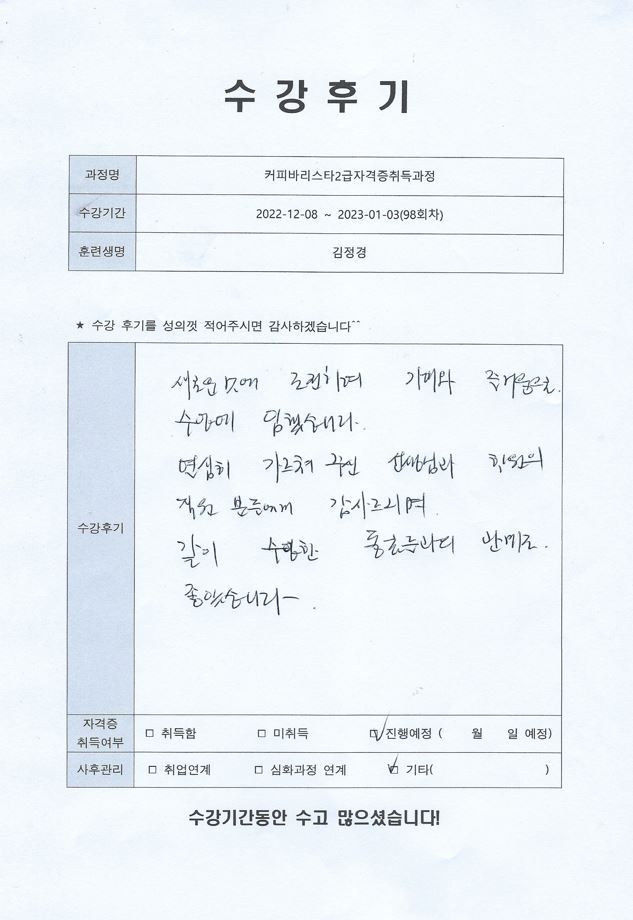 수강후기
과정명 커피바리스타2급자격증취득과정
수강기간 2022-12-08 ~ 2023-01-03(98회차)
훈련생명 김정경
★ 수강 후기를 성의껏 적어주시면 감사하겠습니다^^
수강후기
새로운 것에 도전하며 기대와 즐거움으로
수업에 임했습니다.
열심히 가르쳐 주신 선생님과 학원의
직원 분들에게 감사드리며
같이 수업한 동료들과의 만남도
좋았습니다.
자격증
취득여부 □ 취득함 □ 미취득 □ 진행예정 ( 월 일 예정)
사후관리 □ 취업연계 □ 심화과정 연계 □ 기타( )
수강기간동안 수고 많으셨습니다!